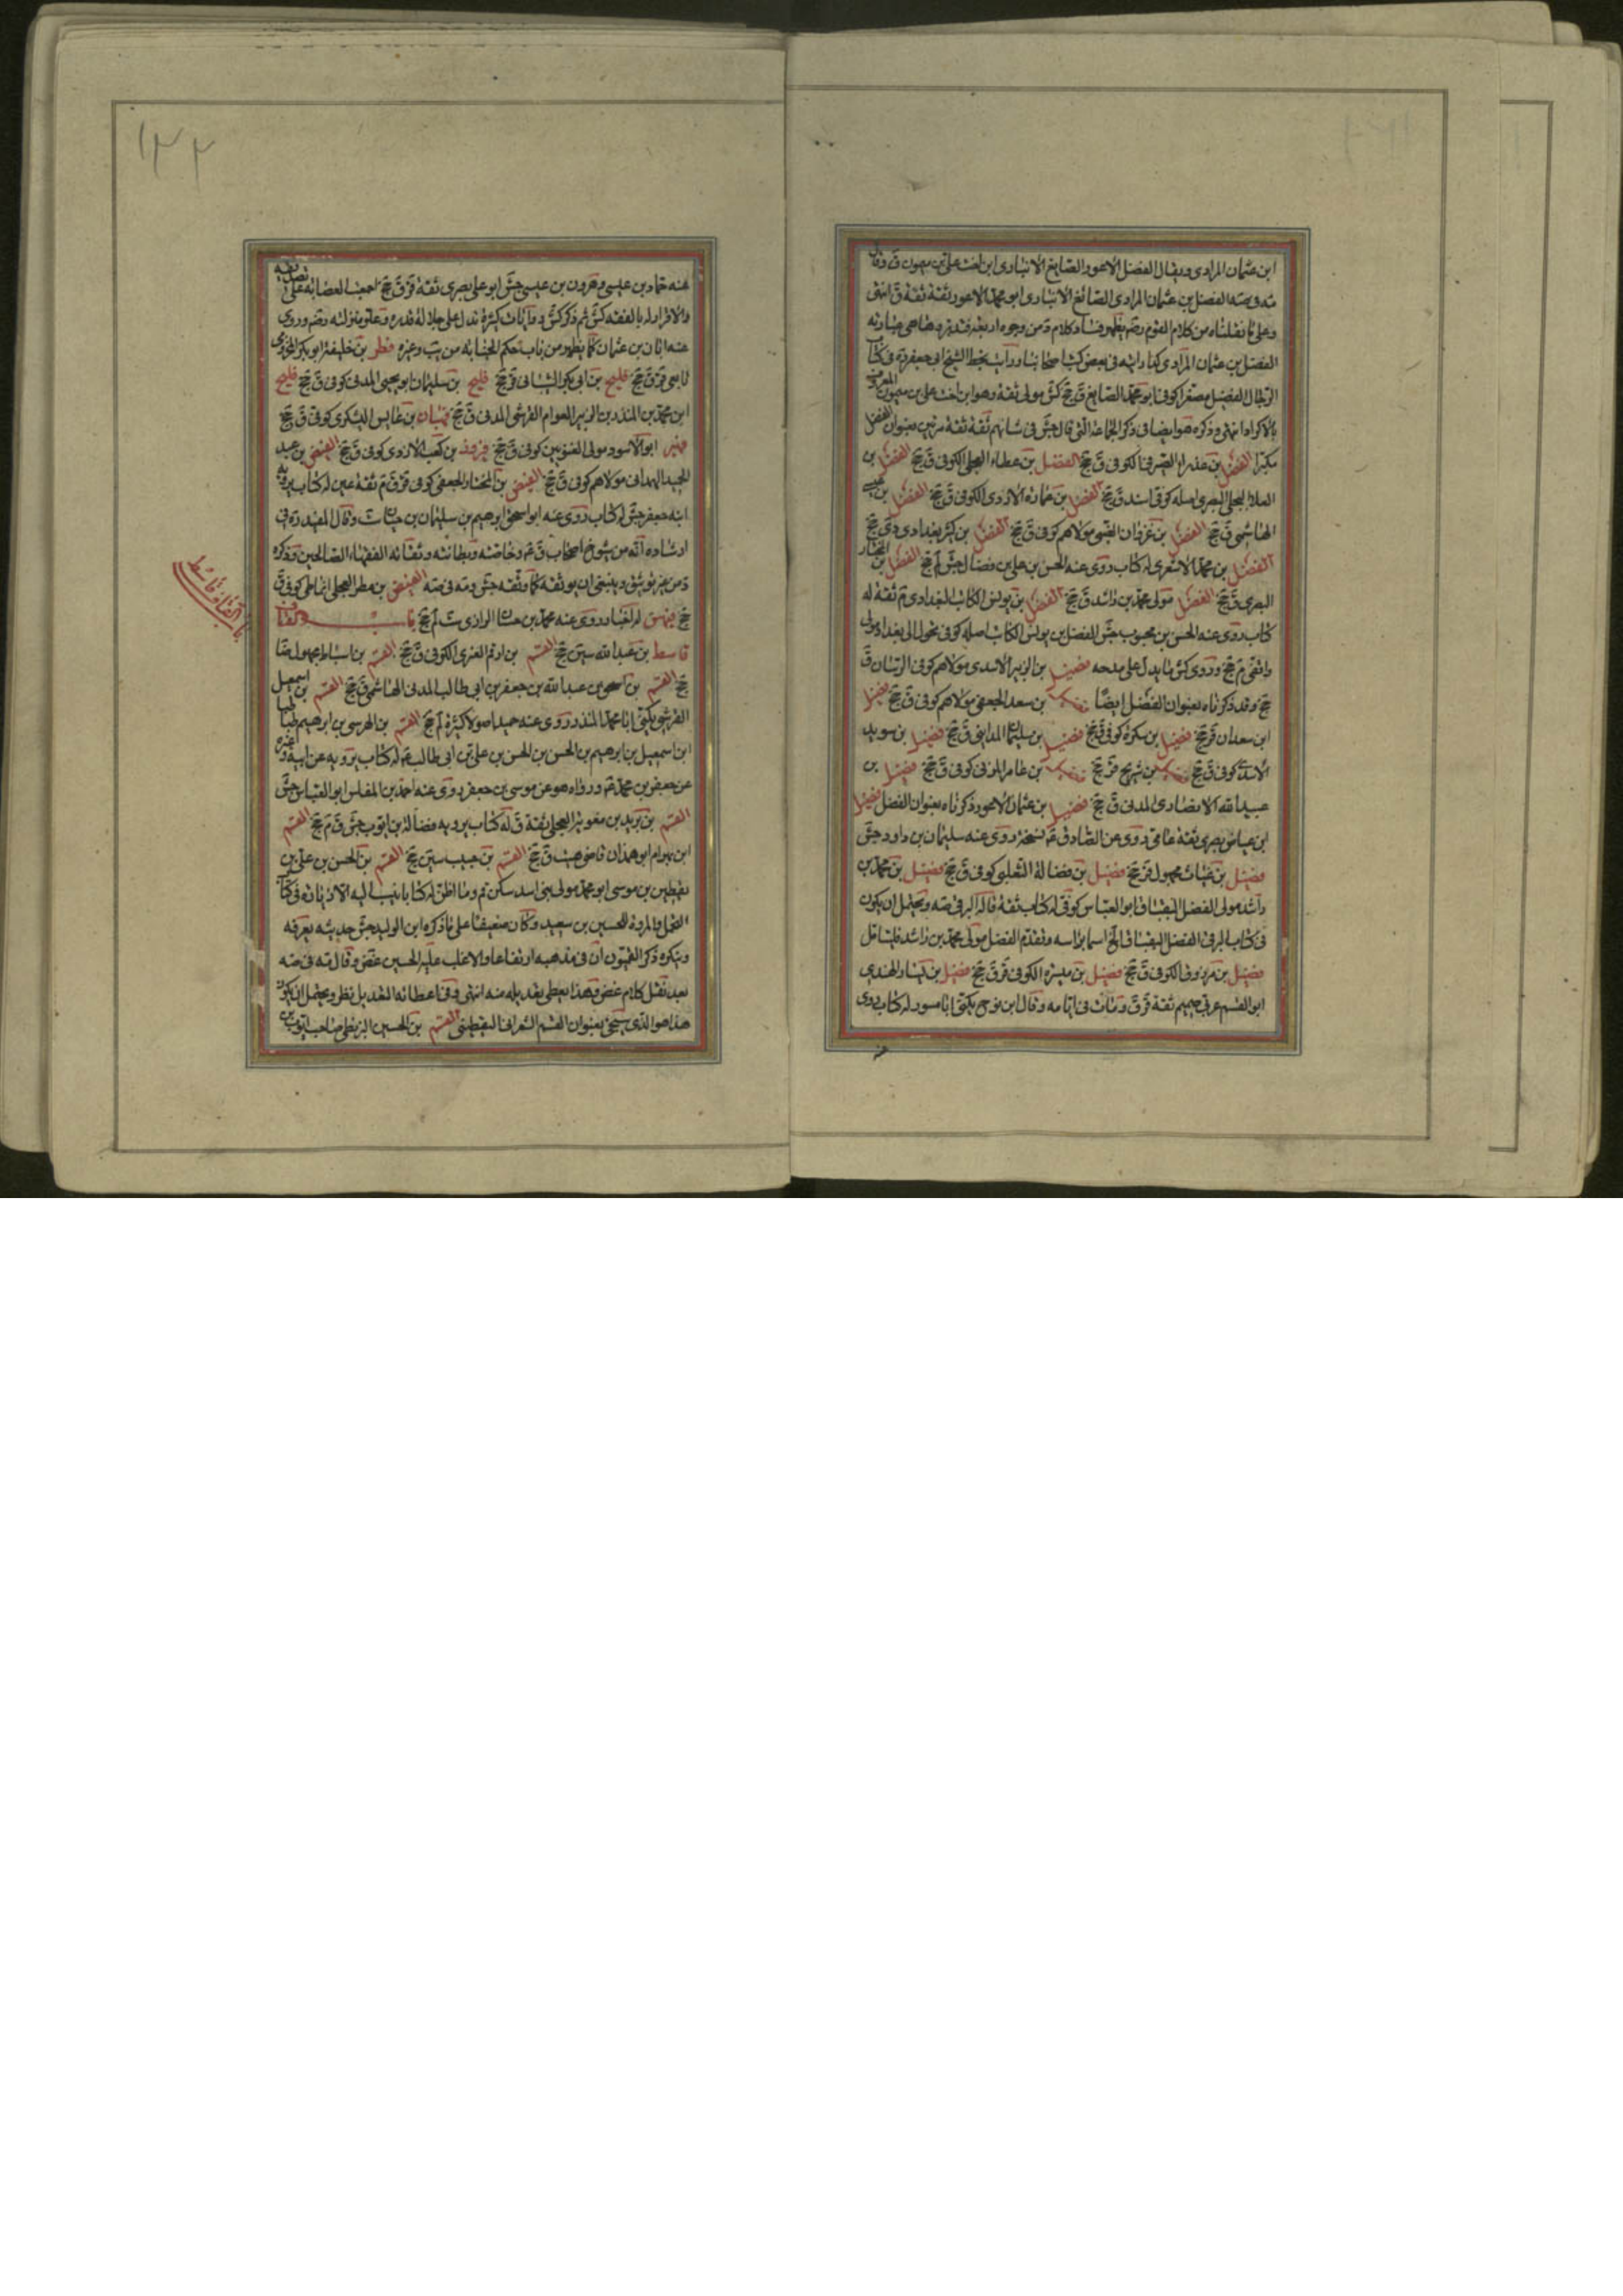 ابن عثمان المرادى ويقال الفضل الاعور الصايغ الانبارى ابن اخت على بن ميمون ق وقال
مه فى ضه الفضل بن عثمان المرادى الصائغ الانبارى ابو محمد الاعور ثقة ثقة ق انتهى
وعلى ما نقلناه من كلام القوم رضم يظهر فساد كلام د من وجوه اربعة فتدبر وهاهى عبارته
الفضل بن عثمان المرادى كذا رايته فى بعض كتب اصحابنا ورايت بخط الشيخ ابى جعفر ره فى كتاب
الرجال الفضيل مصغرا كوفى ابو محمد الصايغ ق جخ كش مولى ثقة وهو ابن اخت على بن ميمون المعروف
بالاكراد انتهى وذكره هو ايضا فى ذكر الجماعة التى قال جش فى شانهم ثقة ثقة مرتين بعنوان الفضل
مكبرا الفضل بن عذراء الصيرفى الكوفى ق جخ الفضل بن عطاء العجلى الكوفى ق جخ الفضل بن
العلاء البجلى البصرى اصله كوفى اسند ق جخ الفضل بن عمارة الازدى الكوفى ق جخ الفضل بن عيسى
الهاشمى ق جخ الفضل بن غزوان الضبى مولاهم كوفى ق جخ الفضل بن كثير بغدادى دى جخ
الفضل بن محمد الاشعرى له كتاب روى عنه الحسن بن على بن فضال جش لم جخ الفضل بن المختار
البصرى ق جخ الفضل مولى محمد بن راشد ق جخ الفضل بن يونس الكاتب البغدادى م ثقة له
كتاب روى عنه الحسن بن محبوب جش الفضل بن يونس الكاتب اصله كوفى تحول الى بغداد مولى
واقفى م جخ وروى كش ما يدل على مدحه فضيل بن الزبير الاسدى مولاهم كوفى الرسان ق
جخ وقد ذكرناه بعنوان الفضل ايضا فضيل بن سعد الجعفى مولاهم كوفى ق جخ فضيل
ابن سعدان قر جخ فضيل بن سكرة كوفى ق جخ فضيل بن سليمان المداينى ق جخ فضيل بن سويد
الاسدى كوفى ق جخ فضيل بن شريح قر جخ فضيل بن عامر المزنى كوفى ق جخ فضيل بن
عبيد الله الانصارى المدنى ق جخ فضيل بن عثمان الاعور ذكرناه بعنوان الفضل فضيل
ابن عياض بصرى ثقة عامى روى عن الصادق ع نسخة روى عنه سليمان بن داود جش
فضيل بن غياث مجهول قر جخ فضيل بن فضالة التغلبى كوفى ق جخ فضيل بن محمد بن
راشد مولى الفضل البقباق ابو العباس كوفى له كتاب ثقة قاله البرقى ضه ويحتمل ان يكون
فى كتاب البرقى الفضل البقباق الخ اسما براسه وتقدم الفضل مولى محمد بن راشد فليتامل
فضيل بن مرزوق الكوفى ق جخ فضيل بن ميسرة الكوفى قر ق جخ فضيل بن يسار الهندى
ابو القسم عربى صميم ثقة قر ق ومات فى ايامه وقال ابن نوح يكنى ابا مسور له كتاب روى
عنه
١٢٢
عنه حماد بن عيسى وهرون بن عيسى جش ابو على بصرى ثقة قر ق جخ اجمعت العصابة على تصديقه
والاقرار له بالفقه كش ثم ذكر كش روايات كثيرة تدل على جلالة قدره وعلو منزلته رضم وروى
عنه ابان بن عثمان كما يظهر من باب حكم الجنابة من يب وغيره فطر بن خليفة ابو بكر المخزومى
تابعى قر ق جخ فليح بن ابى بكر الشيبانى قر جخ فليح بن سليمان ابو يحيى المدنى كوفى ق جخ فليح
ابن محمد بن المنذر بن الزبير العوام القرشى المدنى ق جخ فتيان بن عايس اليشكرى كوفى ق جخ
ابو الاسود مولى كوفى ق جخ فيروز بن كعب الازدى كوفى ق جخ الفيض بن عبد
الحميد الهمدانى مولاهم كوفى ق جخ الفيض بن المختار الجعفى كوفى قر ق م ثقة عين له كتاب يرويه
ابنه جعفر جش له كتاب روى عنه ابو اسحق ابرهيم بن سليمان بن حيان ست وقال المفيد ره فى
ارشاده انه من شيوخ اصحاب ق ع وخاصته وبطانته وثقاته الفقهاء الصالحين وذكره
د من غير توثيق وينبغى ان يوثقه كما وثقه جش ومه فى ضه الفيض بن مطر العجلى انماطى كوفى ق
جخ له اخبار روى عنه محمد بن حسان الرازى ست لم جخ باب القاف
قاسط بن عبد الله سين جخ القسم بن ارقم العنزى الكوفى ق جخ القسم بن اسباط مجهول ضا
جخ القسم بن اسحق بن عبد الله بن جعفر بن ابى طالب المدنى الهاشمى ق جخ القسم بن اسمعيل
القرشى يكنى ابا محمد المنذر روى عنه حميد اصولا كثيرة لم جخ القسم بن الرسى بن ابرهيم طباطبا
ابن اسمعيل بن ابرهيم بن الحسن بن الحسن بن على بن ابى طالب ع له كتاب يرويه عن ابيه وغيره
عن جعفر بن محمد ع ورواه هو عن موسى بن جعفر روى عنه احمد بن المفلس ابو العباس جش
القسم بن بريد بن معوية العجلى ثقة ق له كتاب يرويه فضالة بن ايوب جش ق م جخ القسم
ابن بهرام ابو همدان قاضى هيت ق جخ القسم بن حبيب سين جخ القسم بن الحسن بن على بن
يقطين بن موسى ابو محمد مولى بنى اسد سكن قم وما اظن له كتابا ينسب اليه الا زيادة فى كتاب
التجمل والمروة للحسين بن سعيد وكان ضعيفا على ما ذكره ابن الوليد جش حديثه يعرفه
وينكره ذكر القميون ان فى مذهبه ارتفاعا والاغلب عليه الخير غض وقال مه فى ضه
بعد نقل كلام غض وهذا يعطى تعديله منه انتهى وفى اعطائه التعديل نظر ويحتمل ان يكون
هذا هو الذى سيجئ بعنوان القسم الشعرانى اليقطينى القسم بن الحسين البزنطى صاحب ايوب بن
باب القاف قاسط